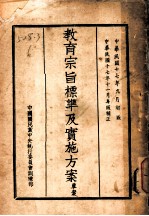 中華民國十七年九月初版
中華民國十七年十一月再版補正
教育宗旨標準及實施方案 草案
中國國民黨中央執行委員會訓練部
508.3